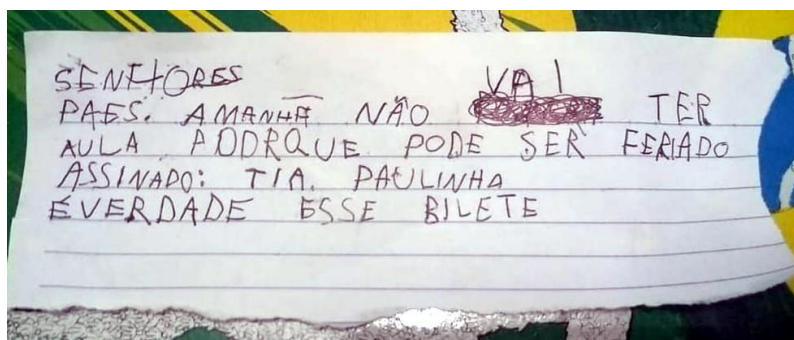 SENHORES
PAES. AMANHÃ NÃO VAI TER
AULA PODRQUE PODE SER FERIADO
ASSINADO: TIA. PAULINHA
É VERDADE ESSE BILETE